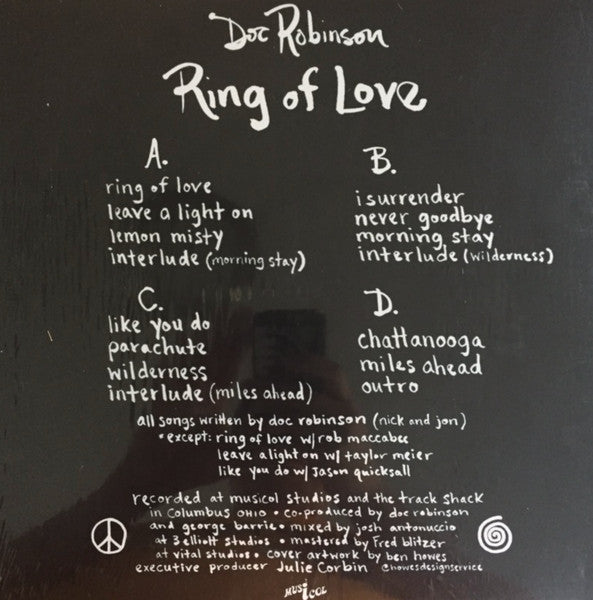 Doc Robinson
Ring of Love
A.
ring of love
leave a light on
lemon misty
interlude (morning stay)
B.
i surrender
never goodbye
morning stay
interlude (wilderness)
C.
like you do
parachute
wilderness
interlude (miles ahead)
D.
chattanooga
miles ahead
outro
all songs written by doc robinson (nick and jon)
*except: ring of love w/ rob maccabee
leave a light on w/ taylor meier
like you do w/ Jason quicksall
recorded at musicol studios and the track shack
in columbus OHIO • co-produced by doc robinson
and george barrie • mixed by josh antonuccio
at 3 elliott studios • mastered by Fred blitzer
at vital studios • cover artwork by ben howes
executive producer Julie Corbin @howesdesignservice
MUSICOL